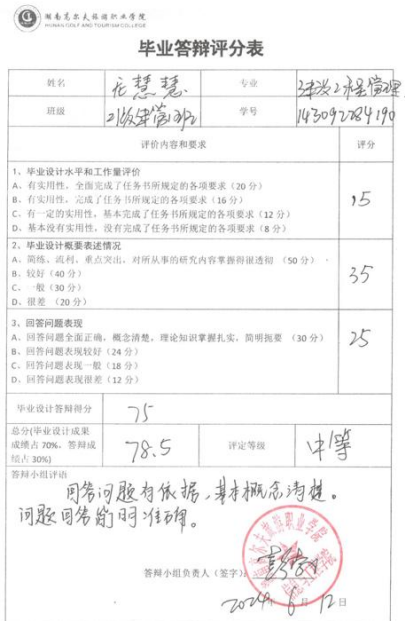 湖南高尔夫旅游职业学院
HUNAN GOLF AND TOURISM COLLEGE
毕业答辩评分表
姓名 庄慧慧 专业 建设工程管理
班级 21级建管班 学号 143092284190
评价内容和要求 评分
1、毕业设计水平和工作量评价
A、有实用性，全面完成了任务书所规定的各项要求（20 分）
B、有实用性，完成了任务书所规定的各项要求（16 分）
C、有一定的实用性，基本完成了任务书所规定的各项要求（12 分）
D、基本没有实用性，没有完成了任务书所规定的各项要求（8 分）
15
2、毕业设计概要表述情况
A、简练、流利、重点突出，对所从事的研究内容掌握得很透彻 （50 分）
B、较好（40 分）
C、一般（30 分）
D、很差 （20 分）
35
3、回答问题表现
A、回答问题全面正确，概念清楚，理论知识掌握扎实，简明扼要 （30 分）
B、回答问题表现较好（24 分）
C、回答问题表现一般（18 分）
D、回答问题表现很差（12 分）
25
毕业设计答辩得分 75
总分(毕业设计成果
成绩占 70%、答辩成
绩占 30%)
78.5 评定等级 中等
答辩小组评语
回答问题有依据，基本概念清楚。
问题回答简明准确。
答辩小组负责人（签字）：
2024年 6月 12日